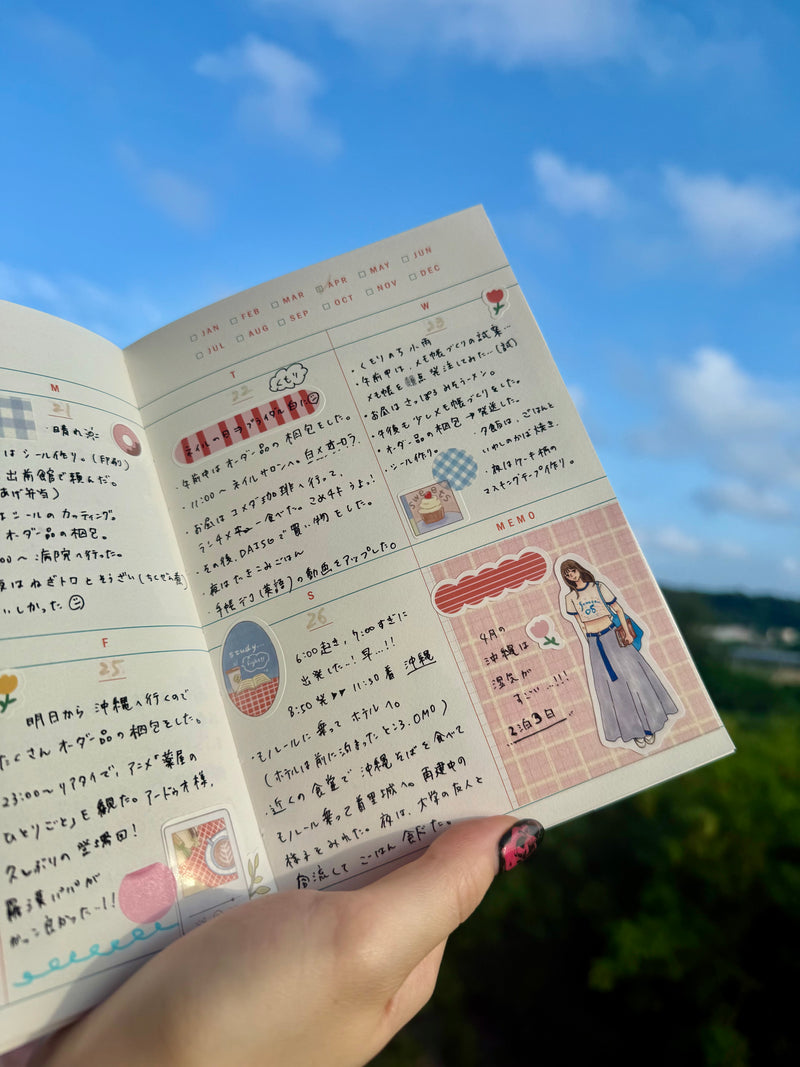 □JAN □FEB □MAR □APR □MAY □JUN
□JUL □AUG □SEP □OCT □NOV □DEC
M
21
・晴れ
はシール作り。(印刷)
出前館で頼んだ。
あげ弁当)
はシールのカッティング。
オーダー品の梱包。
病院へ行った。
夜はねぎトロとそうざい
いしかった
T
22
くもり
ネイルの日→ブライダル白に
・午前中はオーダー品の梱包をした。
・11:00〜ネイルサロンへ。白メオーロラ。
・お昼はコメダ珈琲へ行って、
ランチメ食べた。こめチキうまっ!
・その後、DAISOで買い物をした。
・夜はたきこみごはん
・手帳デコ(英語)の動画をアップした。
W
23
・くもりのち小雨
・午前中は、メモ帳づくりの試案…
メモ帳を 発注してみた…(試)
・お昼はさっぽろみそラーメン。
・午後も少しメモ帳づくりをした。
・オーダー品の梱包→発送した。
・シール作り。
・夕飯は、ごはんと
いわしのかば焼き。
・夜はケーキ柄の
マスキングテープ作り。
sweets
F
25
明日から沖縄へ行くので
たくさんオーダー品の梱包をした。
23:00〜リアタイで、アニメ「薬屋の
ひとりごと」を観た。
久しぶりの登場回!
羅漢パパが
かっこ良かった〜!!
S
26
study...
6:00起き、7:00すぎに
出発した〜!早…!!
8:50発▸▸11:30着 沖縄
・モノレールに乗ってホテルへ。
(ホテルは前に泊まったところ。OMO)
・近くの食堂で沖縄そばを食べて
モノレール乗って首里城へ。再建中の
様子をみれた。夜は、大学の友人と
合流してごはん食べた。
MEMO
4月の
沖縄は
湿気が
すごい…!!!
2泊3日